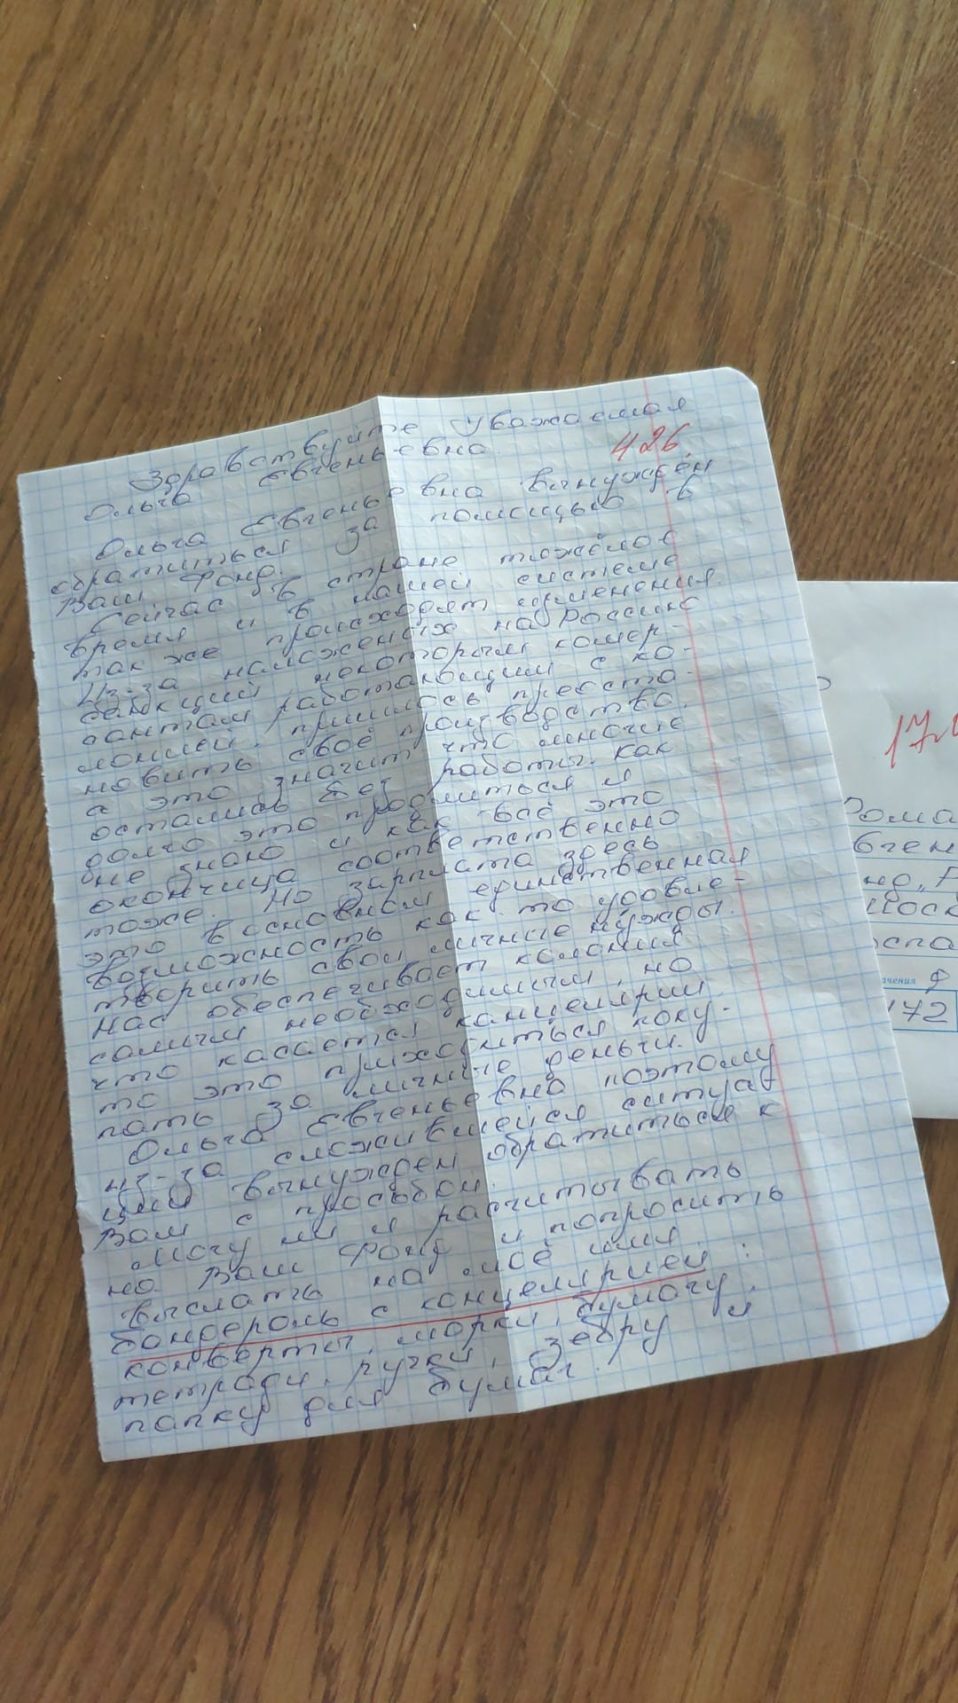 Здравствуйте Уважаемая
Ольга Евгеньевна.
426
Ольга Евгеньевна вынужден
обратиться за помощью в
Ваш Фонд.
Сейчас в стране тяжёлое
время и в нашей системе
так же происходят изменения.
Из-за наложеных на Россию
санкций некоторым комер-
сантам работающим с ко-
лонией, пришлось преоста-
новить своё производство.
а это значит что многие
остались без работы. Как
долго это продлиться я
не знаю и как всё это
окончица соответственно
тоже. Но зарплата здесь
это в основном единственная
возможность как-то удовле-
творить свои личные нужды.
Нас обеспечивает колония
самим необходимым, но
что касается канцелярии
то это приходиться поку-
пать за личные деньги.
Ольга Евгеньевна поэтому
из-за сложившейся ситуа-
ции вынужден обратиться к
Вам с просьбой.
Могу ли я расчитывать
на Ваш Фонд и попросить
выслать на моё имя
бандероль с канцелярией:
конверты, марки, бумагу,
тетради, ручки, зебру и
папку для бумаг.
17.0
Рома
вген
но "Р
Моск
спа
чения Ф
172